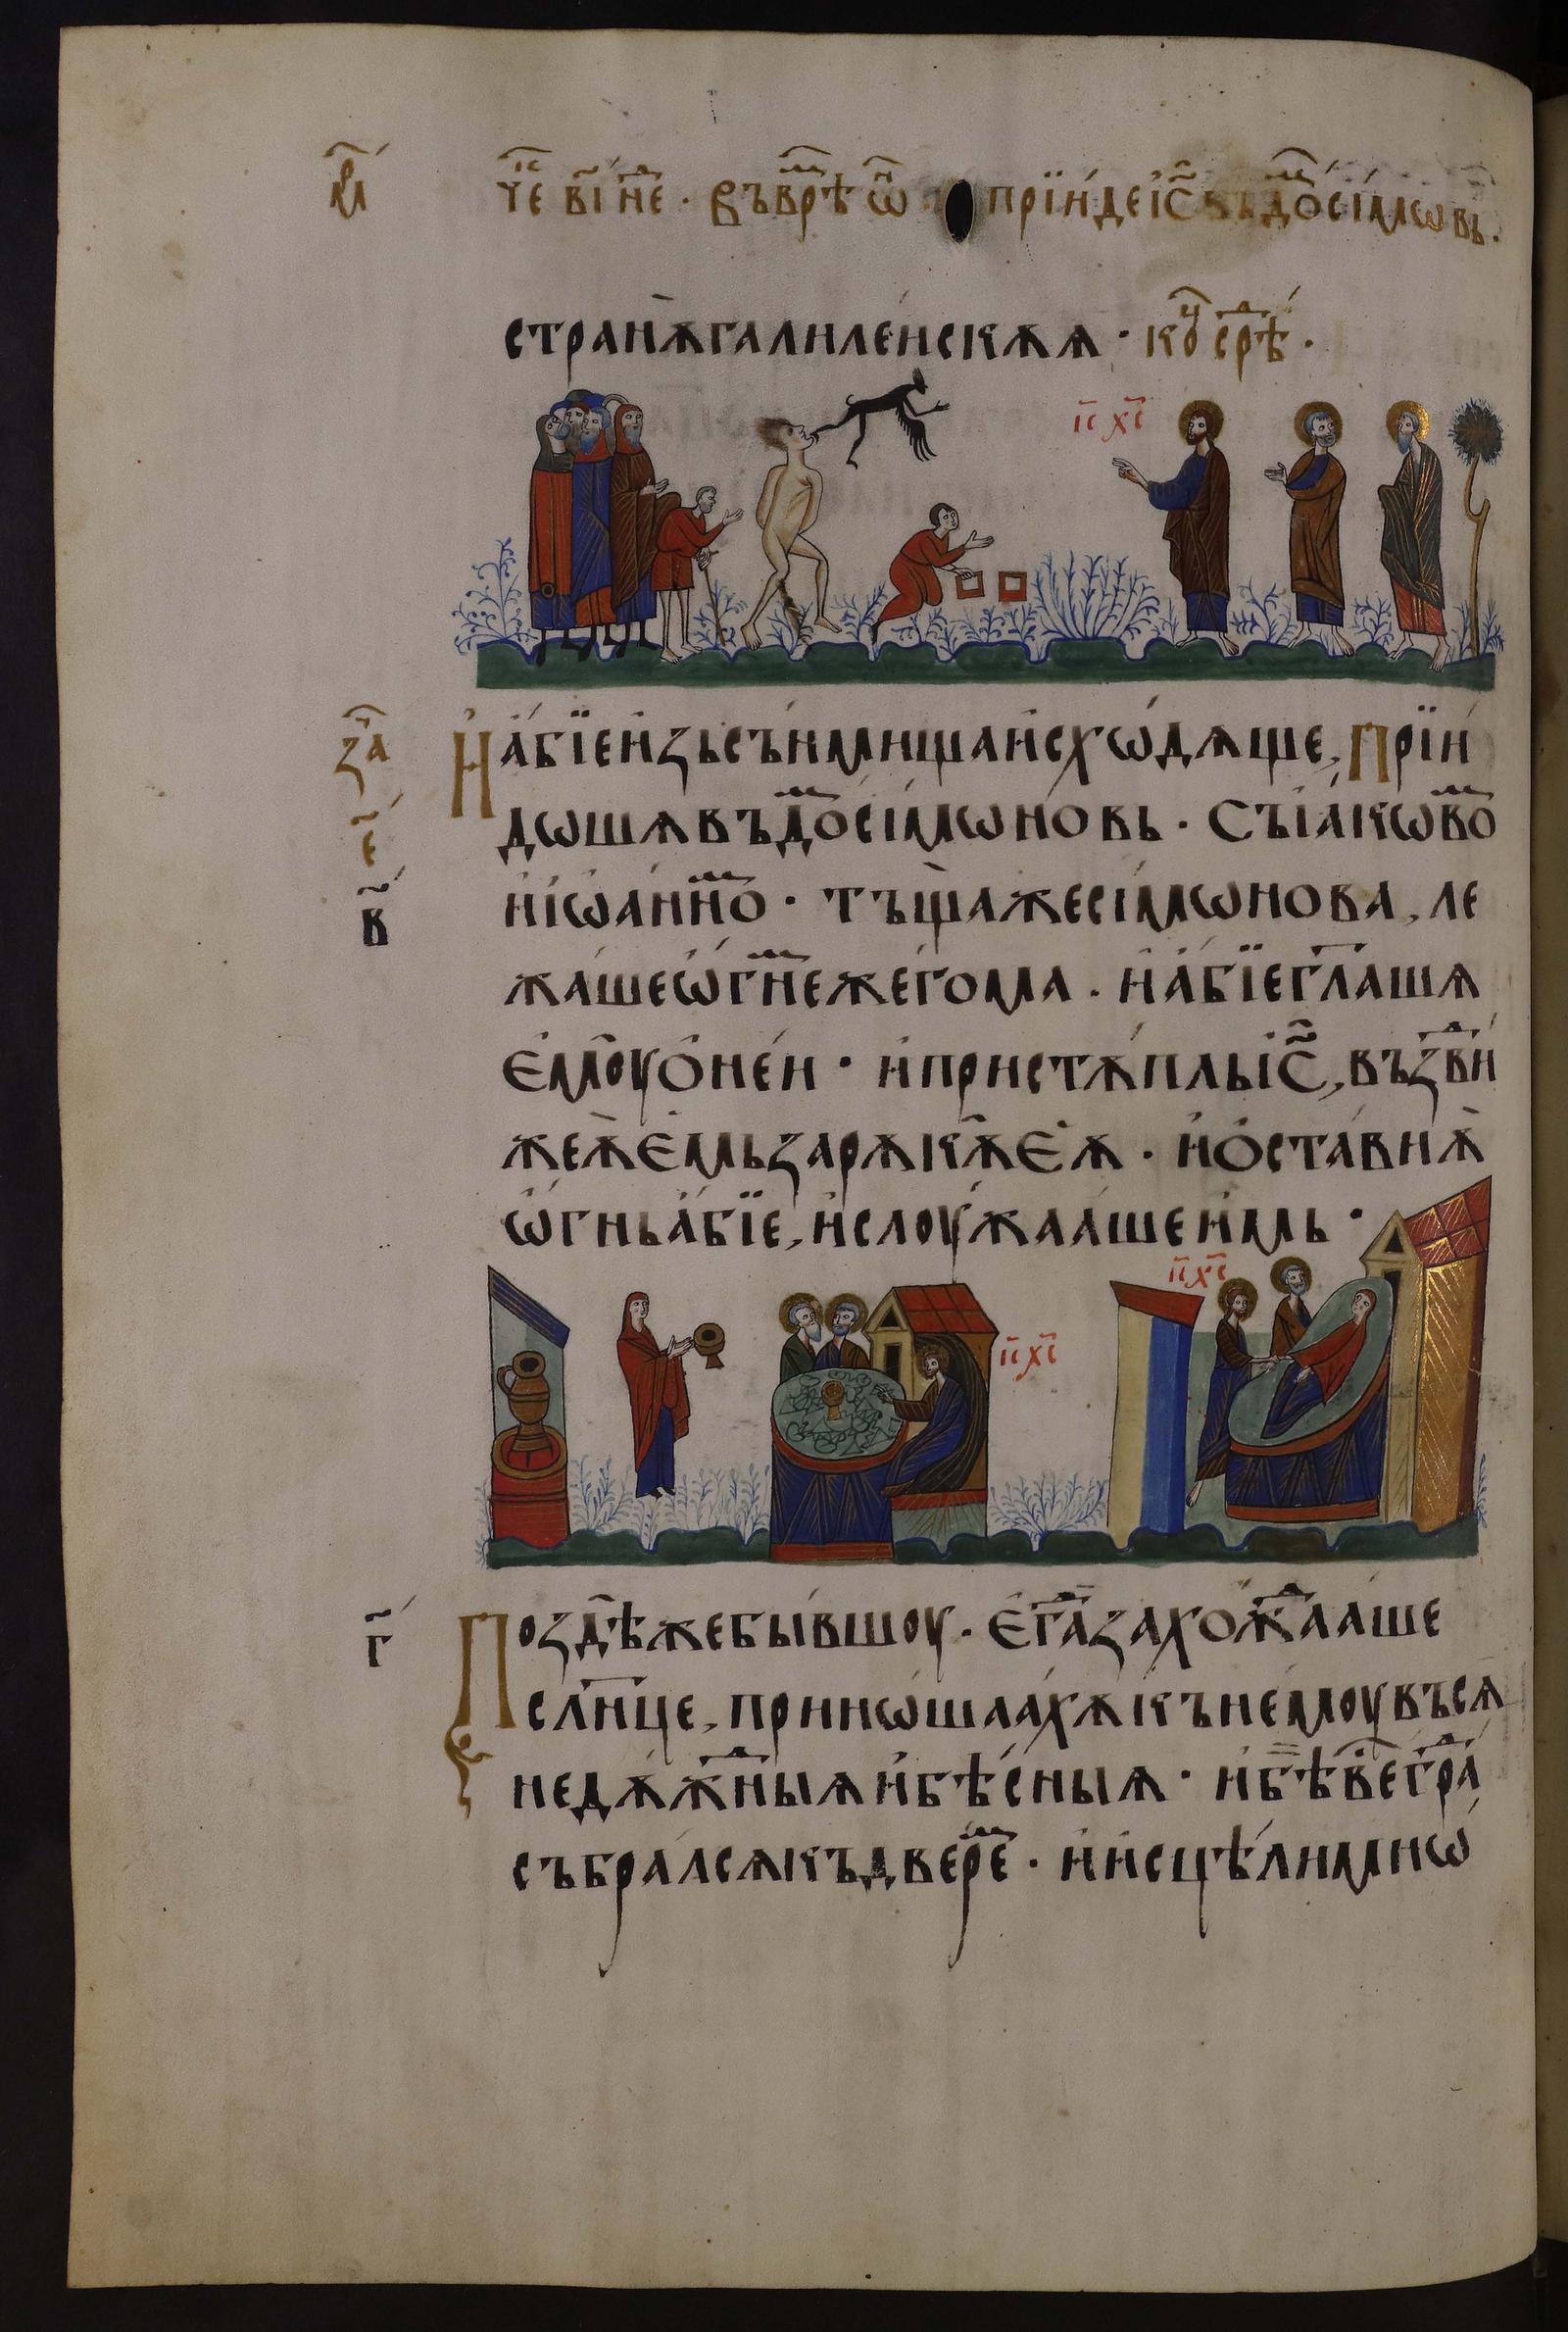 че҃ в҃і не҃ · въ врѣ ѡ҃ прїи́де і҃с въ до сі́мѡвь ·
страни́ѫ галиле́искѫѧ · ко҃ срѣ́ ·
і҃с х҃с
за҃
И҆ а҆́бїе и҆зь съ́нмища и҆схѡ́дѧще, прїи
е҃
дѡшѧ въ до сі́мѡновь · съ і҆а́кѡво
в҃
и҆ і҆ѡа́нно · тъ́ща же сі́мѡнова, ле
жа́ше ѡ҆гне же́гома · и҆ а҆́бїе гла́шѧ
е҆моу ѻ҆ не́и · и҆ пристѫ́пль і҃с, възви́
же ѫ҆̀ е҆́мь за рѫкѫ е҆ѧ̀ · и҆ ѻ҆ста́ви ѫ҆̀
ѡ҆́гнь а҆́бїе, и҆ слоу́жааше и҆́мь ·
і҃с х҃с
і҃с х҃с
г҃
Поздѣ же бы́вшоу · е҆га захо́жаа́ше
слн҃це, приннѡ́шаахѫ къ не́моу въсѧ̀
недѫ́жныѧ и҆ бѣ́сныѧ · и҆ бѣ ве гра́
събра́лсѧ къ двере · и҆ и҆сцѣ́ли мнѡ́